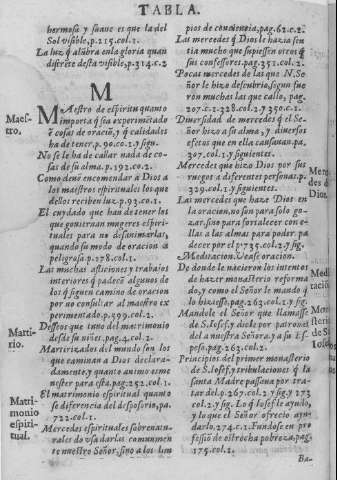 TABLA.
hermosa y suaue es que la del
Sol visible, p.215.col.1.
La luz q̃ alũbra en la gloria quan
disiere desta visible, p.314.c.2
M
Maes-
tro.
MAestro de espiritu quanto
importa q̃ sea experimẽtado
ẽ cosas de oraciõ, y q̃ calidades
ha de tener, p.90.co.2.y sigu.
No se le ha de callar nada de co-
sas de su alma. p.392.co.2.
Como deuẽ encomendar a Dios a
los maestros espirituales los que
dellos reciben luz. p.93.co.1.
El cuydado que han de tener los
que gouiernan mugeres espiri-
tuales para no desanimarlas,
quando su modo de oracion es
peligrosa. p.178.col.1.
Las muchas afliciones y trabajos
interiores q̃ padece algunos de
los q̃ siguen camino de oracion
por no consultar al maestro ex
perimentado. p.599.col.2.
Marti-
rio.
Desseos que tuuo del martirio
desde su niñez. pag.4.col.2.
Martirizados del mundo son los
que caminan a Dios declara-
damente, y quanto animo es me
nester para esto, pag.252.col.1.
Matri-
monio
espiri-
tual.
El matrimonio espiritual quanto
se diferencia del desposorio, pa.
722.col.1.
Mercedes espirituales sobrenatu-
rales no vsa darlas comunmen
te nuestro Señor, sino a los lim
pios de conciencia, pag.62.c.2.
Las mercedes q̃ Dios le hazia sen
tia mucho que supiessen otros q̃
sus confessores. pag.351.col.2.
Pocas mercedes de las que N. Se
ñor le hizo descubrio, segun fue
ron muchas las que callo, pag.
207.c.1.328.col.2.y 350.c.1.
Diuersidad de mercedes q̃ el Se-
ñor hizo a su alma, y diuersos
efetos que en ella causauan. pa.
307.col.1.y siguientes.
Mercedes que hizo Dios por sus
ruegos a diferentes personas. p.
329.col.1.y siguientes.
Las mercedes que haze Dios en
la oracion, no son para solo go-
zar, sino para fortalecer con e-
llas a las almas para poder pa
decer por el p.735.col.2.y sig.
Meditacion. Vease oracion.
De donde le nacieron los intentos
de hazer monasterio reforma
do, y como el Señor le mando q̃
lo hiziesse. pag.263.col.2.y sig.
Mandole el Señor que llamasse
de S. Iosef, y diole por patrones
del a nuestra Señora, y a su Es
poso. pag.263.col.2.
Principios del primer monasterio
de S. Iosef, y tribulaciones q̃ la
santa Madre passaua por tra-
tar del. p.267.col.2.y sig.y 273
col.2.y sig. Lo q̃ Iosef le ayudo,
y lo que el Señor ofrecio ayu-
darlo. 274.c.1. Fundose en pro
fession de estrecha pobreza. pag.
175.col.2.
Ba-